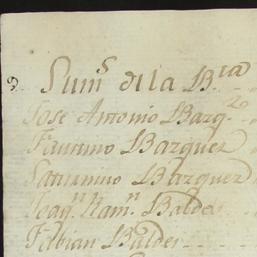 Sum^s de la B^ra
Jose Antonio Bazq^z
Faustino Bazquez
Saturnino Bazquez
Joaq^n Ram^n Baldes
Fabian Baldes